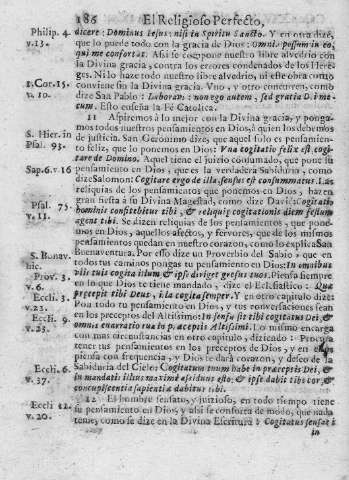 186 El Religioso Perfecto,
Philip. 4. dicere: Dominus Iesus: nisi in Spiritu Sancto. Y en otra dize,
v.13. que lo puede todo con la gracia de Dios: Omnia possum in eo,
qui me confortat. Assi se compone nuestro libre alvedrio con
la Divina gracia, contra los errores condenados de los Hereges.
Ni lo haze todo nuestro libre alvedrio, ni este obra como
1. Cor. 15. conviene sin la Divina gracia. Vno, y otro concurren, como
v. 10. dize San Pablo: non ego autem, sed gratia Dei mecum.
Esto enseña la Fè Catolica.
11 Aspiremos à lo mejor con la Divina gracia, y pongamos
todos nuestros pensamientos en Dios, à quien los debemos
S. Hier. in de justicia. San Geronimo dize, que aquel solo es pensamiento
Psal. 93. feliz, que lo ponemos en Dios: Vna cogitatio felix est, cogitare
de Domino. Aquel tiene el juizio consumado, que pone su
Sap. 6. v. 16 pensamiento en Dios, que es la verdadera Sabiduria, como
dize Salomon: Cogitare ergo de illa, sensus est consummatus. Las
reliquias de los pensamientos que ponemos en Dios, hazen
Psal. 75. gran fiesta à su Divina Magestad, como dize David: Cogitatio
v. 11. hominis confitebitur tibi, & reliquiæ cogitationis diem festum
agent tibi. Se dizen reliquias de los pensamientos, que ponemos
en Dios, aquellos afectos, y fervores, que de los mismos
pensamientos quedan en nuestro corazon, como lo explica San
S. Bonav. Buenaventura. Por esso dize un Proverbio del Sabio, que en
hic. todos tus caminos pongas tu pensamiento en Dios: In omnibus
Prov. 3. viis tuis cogita illum & ipse diriget gressus tuos. Piensa siempre
v. 6. en lo que Dios te tiene mandado, dize el Eclesiastico: Quæ
Eccli. 3. præcepit tibi Deus, illa cogita semper. Y en otro capitulo dize:
v. 22. Pon todo tu pensamiento en Dios, y tus conversaciones sean
Eccli. 9. en los preceptos del Altissimo: In sensu sit tibi cogitatus Dei, &
v. 23. omnis enarratio tua in præceptis Altissimi. Lo mismo encarga
con mas circunstancias en otro capitulo, diziendo: Procura
tener tus pensamientos en los preceptos de Dios, y en
piensa con frequencia, y Dios te darà corazon, y deseo de la
Eccli. 6. Sabiduria del Cielo: Cogitatum tuum habe in præceptis Dei, &
v. 37. in mandatis illius maximè assiduus esto, & ipse dabit tibi cor, &
concupiscentia sapientiæ dabitur tibi.
12 El hombre sensato, y juizioso, en todo tiempo tiene
Eccli 12. su pensamiento en Dios, y assi se conforta de modo, que nada
v. 20. teme; como se dize en la Divina Escritura: Cogitatus sensati
in